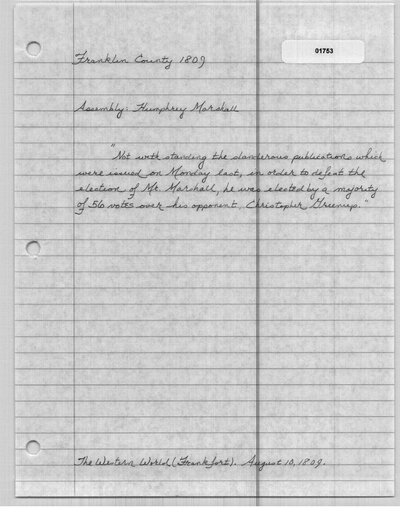 01753
Franklin County 1809
Assembly: Humphrey Marshall
"Not with standing the slanderous publications which
were issued on Monday last, in order to defeat the
election of Mr. Marshall, he was elected by a majority
of 56 votes over his opponent, Christopher Greenup."
The Western World (Frankfort). August 10, 1809.